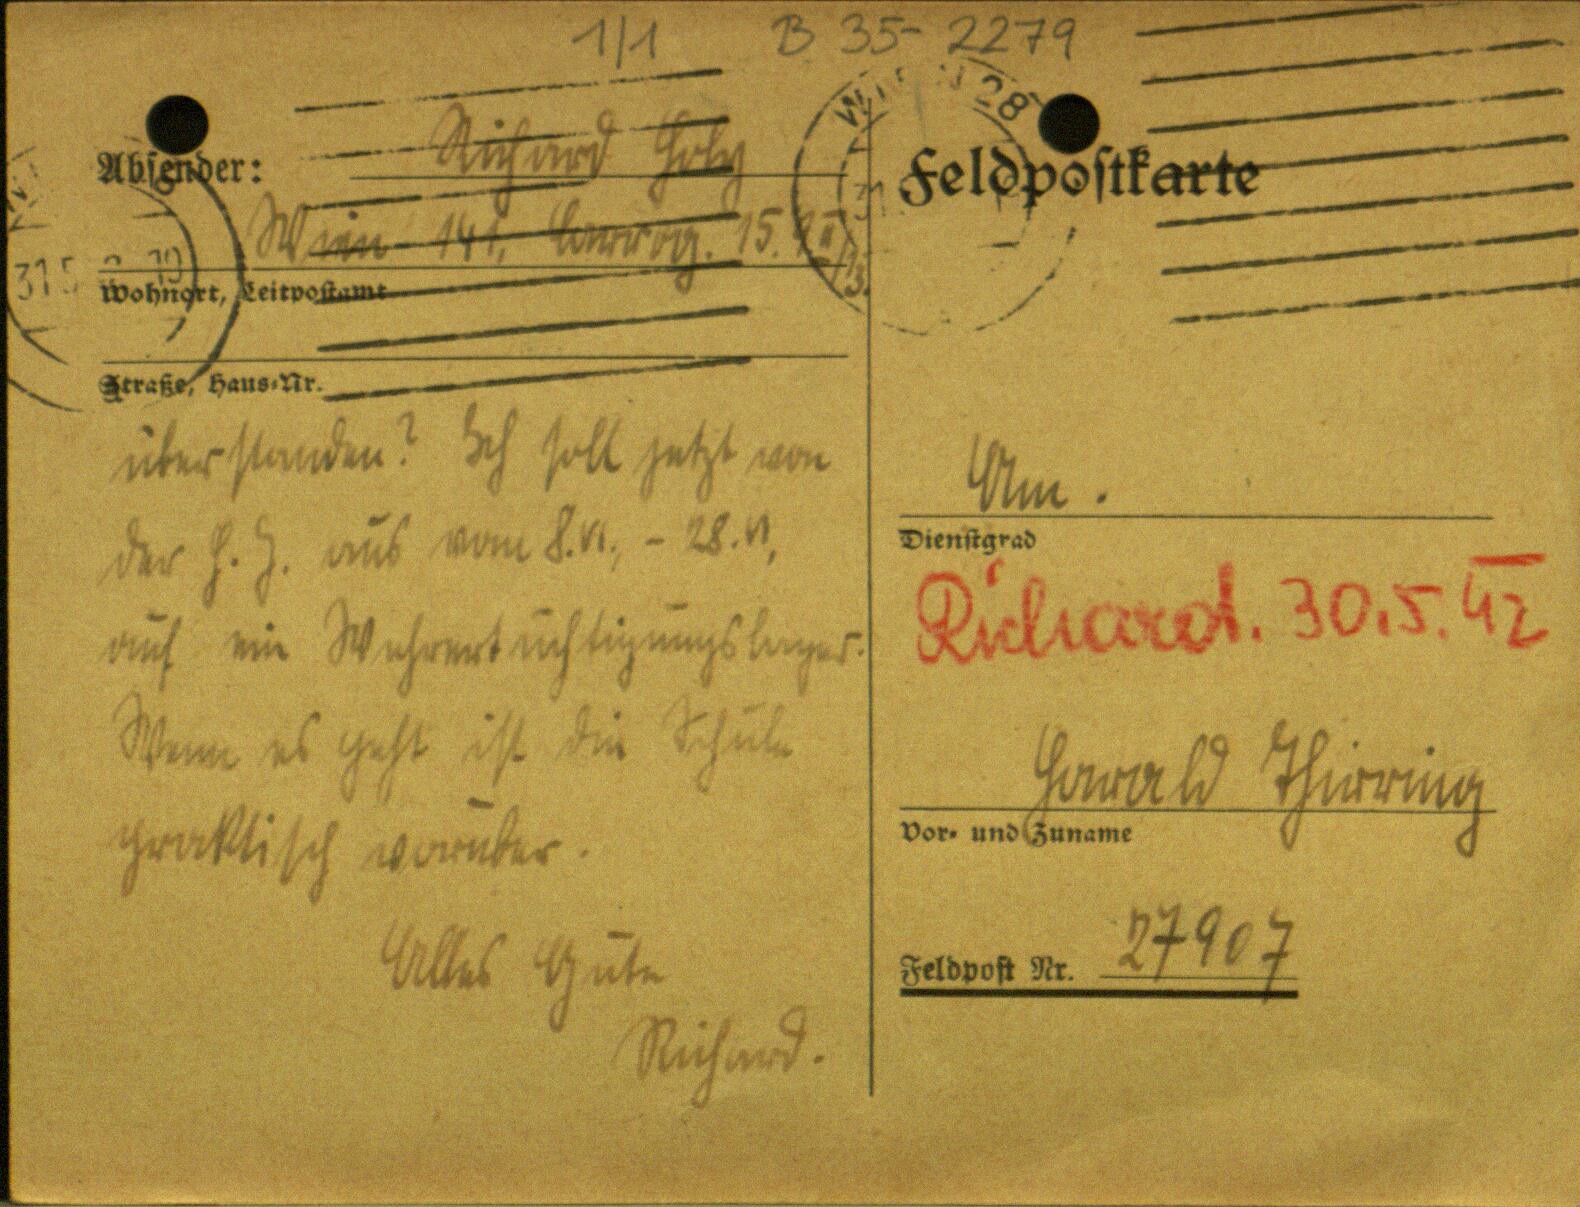 1/1 B 35-2279
WIEN 28
Absender: Richard Holy
Wien 141, 15. II/13.
31.5
Wohnort, Leitpostamt
Straße, Haus-Nr.
überstanden? Ich soll jetzt von
der H. J. aus vom 8.VI., - 28.VI,
auf ein Wehrertüchtigungslager.
Wenn es geht ist die Schule
praktisch vorüber.
Alles Gute
Richard.
Feldpostkarte
An.
Dienstgrad
Richard. 30.5.42
Harald Thirring
Vor- und Zuname
Feldpost Nr. 27907